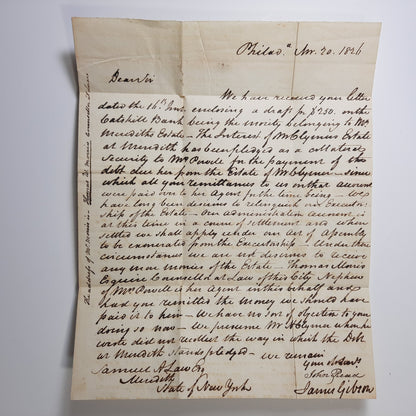 Philad.ᵃ Nov. 20. 1826
Dear Sir
We have received your letter
dated the 16th Inst. enclosing a draft for $250. on the
Catskill Bank being the moiety belonging to Mr.
Merediths Estate – The Interest of Mr Clymers Estate
at Meredith has been pledged as a collateral
Security to Mrs Powell for the payment of the
debt due her from the Estate of Mr Clymer – since
which all your remittances to us on that account
were paid over to her Agent for the time being – We
have long been desirous to relinquish our Executor-
ship of the Estate – Our administration account is
at this time in a course of settlement and when
settled we shall apply under our Act of Assembly
to be exonerated from the Executorship – Under these
circumstances we are not desirous to receive
any more monies of the Estate – Thomas Morris
Esquire Counsellor at Law of this City Nephew
of Mrs Powell is her agent in this behalf and
had you remitted the money we should have
paid it to him – We have no sort of objection to your
doing so now – We presume Mr H Clymer when he
wrote did not recollect the way in which the Debt
at Meredith stands pledged – We remain
Samuel A. Law Esq
Meredith
State of New York
Your Ob. Serv.ts
John Read
James Gibson
The address of Mr Morris is – Thomas Morris Counsellor at Law